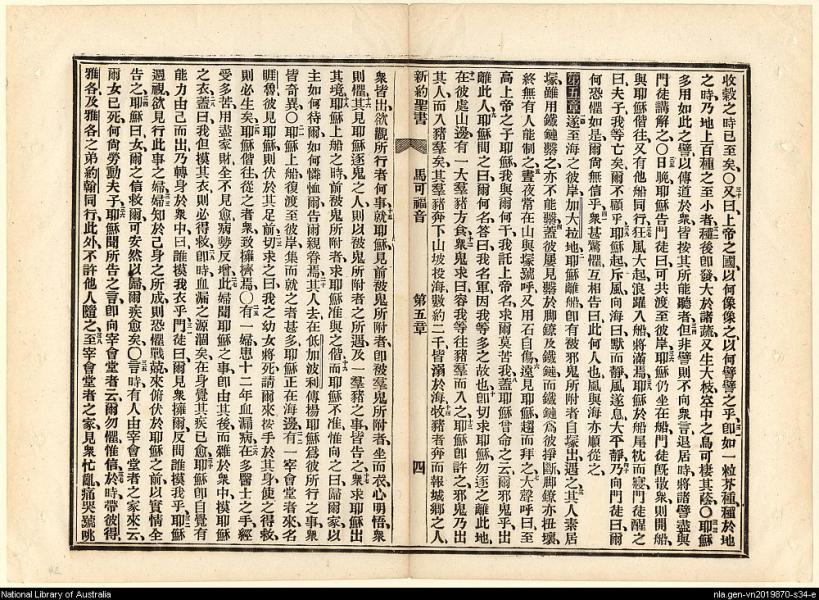 收穀之時已至矣○又曰上帝之國以何像像之以何譬譬之乎卽如一粒芥種種於地
之時乃地上百種之至小者種後卽發大於諸蔬又生大枝空中之鳥可棲其蔭○耶穌
多用如此之譬以傳道於衆皆按其所能聽者但非譬則不向衆言退居時將諸譬盡與
門徒講解之○日晚耶穌告門徒曰可共渡至彼岸耶穌仍坐在船門徒旣散衆則開船
與耶穌偕往又有他船同行狂風大起浪躍入船將滿焉耶穌於船尾枕而寢門徒醒之
曰夫子我等亡矣爾不顧乎耶穌起斥風向海曰默而靜風遂息大平靜乃向門徒曰爾
何恐懼如是爾尙無信乎衆甚驚懼互相告曰此何人也風與海亦順從之
第五章遂至海之彼岸加大拉地耶穌離船卽有被邪鬼所附者自塚出遇之其人素居
塚雖用鐵鏈繫之亦不能繫蓋彼屢見繫於脚鐐及鐵鏈而鐵鏈爲彼掙斷脚鐐亦扭壞
終無有人能制之晝夜常在山與塚號呼又用石自傷遠見耶穌趨而拜之大聲呼曰至
高上帝之子耶穌我與爾何干我託上帝名求爾莫苦我蓋耶穌曾命之云爾邪鬼乎出
離此人耶穌問之曰爾何名答曰我名軍因我等多之故也卽切求耶穌勿逐之離此地
在彼處山邊有一大羣豬方食衆鬼求曰容我等往豬羣而入之耶穌卽許之邪鬼乃出
其人而入豬羣矣其羣豬奔下山坡投海數約二千皆溺於海牧豬者奔而報城鄉之人
新約聖書 馬可福音 第五章 四
衆皆出欲觀所行者何事就耶穌見前被鬼所附者卽被羣鬼所附者坐而衣心明悟衆
則懼其見耶穌逐鬼之人則以被鬼所附者之所遇及一羣豬之事皆告之衆求耶穌出
其境耶穌上船之時前被鬼所附者求耶穌准與之偕而耶穌不准惟向之曰歸爾家以
主如何待爾如何憐恤爾告爾親眷焉其人去在低加波利傳揚耶穌爲彼所行之事衆
皆奇異○耶穌上船復渡至彼岸集而就之者甚多耶穌正在海邊有一宰會堂者來名
睚魯彼見耶穌則伏於其足前切求之曰我之幼女將死請爾來按手於其身使之得救
則必生矣耶穌偕往從之者衆致擁擠焉○有一婦患十二年血漏病在多醫士之手經
受多苦用盡家財全不見愈病勢反增此婦聞耶穌之事卽由其後而雜於衆中摸耶穌
之衣蓋曰我但摸其衣則必得救卽時血漏之源涸矣在身覺其疾已愈耶穌卽自覺有
能力由己而出乃轉身於衆中曰誰摸我衣乎門徒曰爾見衆擁爾反問誰摸我乎耶穌
週視欲見行此事之婦婦知於己身之所成則恐懼戰兢來俯伏於耶穌之前以實情全
告之耶穌曰女爾之信救爾可安然以歸爾疾愈矣○言時有人由宰會堂者之家來云
爾女已死何尙勞動夫子耶穌聞所告之言卽向宰會堂者云爾勿懼惟信於時帶彼得
雅各及雅各之弟約翰同行此外不許他人隨之至宰會堂者之家見衆忙亂痛哭號咷
National Library of Australia
nla.gen-vn2019870-s34-e